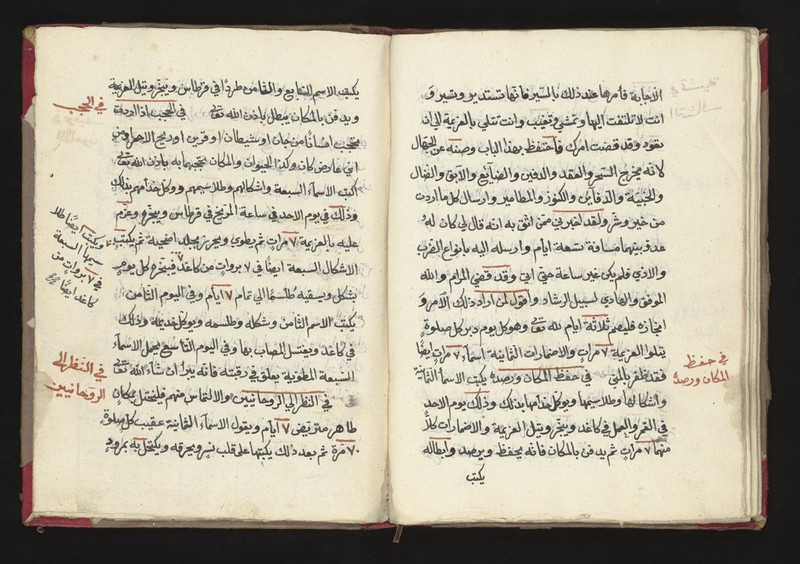 الاجابة فأمرها عند ذلك بالمسير فانها تستدير وتسير و
انت لا تلتفت اليها وتمشي وتغيب وانت تتلي بالعزيمة الى ان
تقود وقد قضت امرك فاحتفظ بهذا الباب وصنه عن الجهال
لانه مخرج السحر والعقد والدفين والضايع والابق والضال
والخبية والدفاين والكنوز والمطامير وارسال كل ما اردت
من خير وشر ولقد اخبرني من اثق به انه قال لي كان له
عدو بينهما مسافة تسعة ايام وارسله اليه بانواع الضرب
والاذى فلم يكن غير ساعة حتى اتى وقد قضي المرام والله
الموفق والهادي لسبيل الرشاد واقول لمن اراد ذلك الامر و
انجازه فليصم ثلاثة ايام لله تعالى وهو كل يوم دبر كل صلوة
يتلوا العزيمة ٧ مرات والاضمارات الثمانية اسماء ٧ مرات ايضا
فقد ظفر بالمنى في حفظ المكان ورصده يكتب الاسماء الثمانية
واشكالها وطلاسمها ويوكل خدامها بذلك وذلك يوم الاحد
في القمر والعمل في كاغد ويبخر وتبتل العزيمة والاضمارات كلا
منهما ٧ مرات ثم يدفن بالمكان فانه يحفظ ويرصد وابطاله
يكتب
في حفظ
المكان ورصده
يكتب الاسم السابع والخامس طردا في قرطاس ويبخر وتبتل العزيمة
ويدفن بالمكان يبطل باذن الله تعالى في الحجب اذا اردت
تحجب انسانا من جان او شيطان او قرين او ريح الاحمر ومن
اي عارض كان وكذا الحيوان والمكان تحجبها به باذن الله تعالى
اكتب الاسماء السبعة واشكالهم وطلاسمهم ووكل خدامهم بذلك
وذلك في يوم الاحد في ساعة المريخ في قرطاس ويبخره وعزم
عليه بالعزيمة ٧ مرات ثم يطوى ويحرز بجلد اضحية ثم يكتب
الاشكال السبعة ايضا في ٧ بروات من كاغد فيبخر كل يوم
بشكل ويسقيه طلسما الى تمام ٧ ايام وفي اليوم الثامن
يكتب الاسم الثامن وشكله وطلسمه ويوكل خديمه وذلك
في كاغد ويغتسل المصاب بها وفي اليوم التاسع يحمل الاسماء
السبعة المطوية يعلق في رقبته فانه يبرأ ان شاء الله تعالى
في النظر الى الروحانيين والالتماس منهم فليختل بمكان
طاهر متريض ٧ ايام ويقول الاسماء الثمانية عقيب كل صلوة
٧٠ مرة ثم بعد ذلك يكتبها على قلب نسر ويحرقه ويكتحل به بمرود
في الحجب
ويكتب ايضا طلا
سمها السبعة
في ٧ بروات من
كاغد ايضا
في النظر الى
الروحانيين